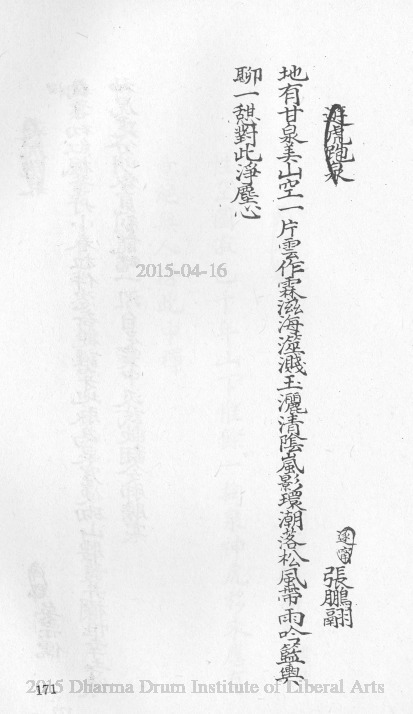 遊虎跑泉
遂甯 張鵬翮
地有甘泉美山空一片雲作霖滋海澨濺玉灑清陰嵐影環潮落松風帶雨吟藍輿
聊一憩對此淨塵心
2015-04-16
171
2015 Dharma Drum Institute of Liberal Arts